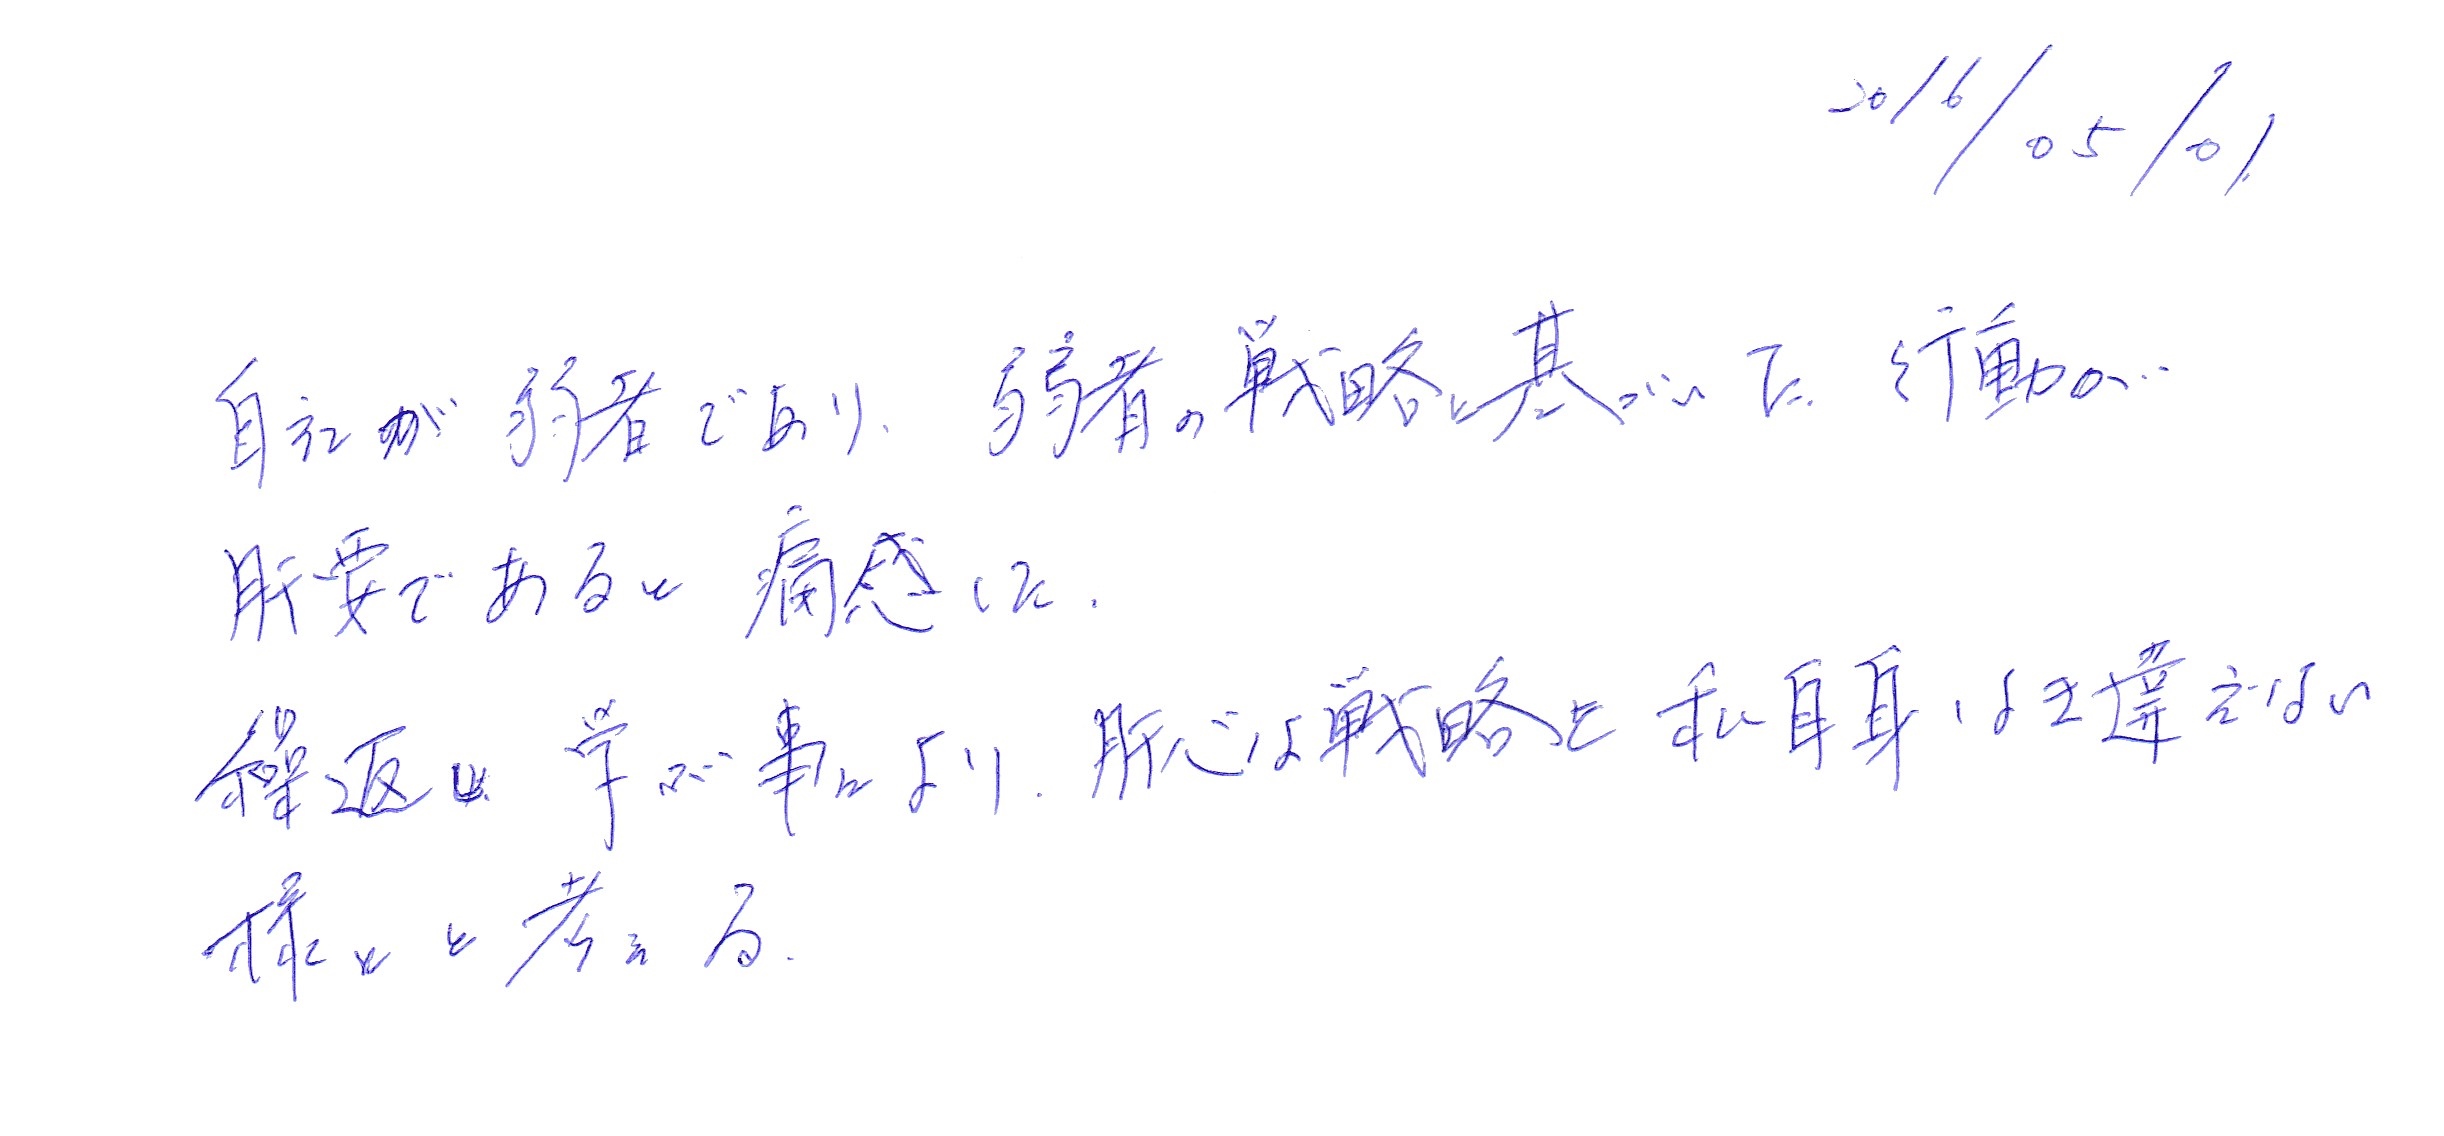 2016/05/01
自社が弱者であり、弱者の戦略に基づいた行動が
肝要であると痛感した.
繰返し学ぶ事により、肝心な戦略と私自身はき違えない
様にと考える.